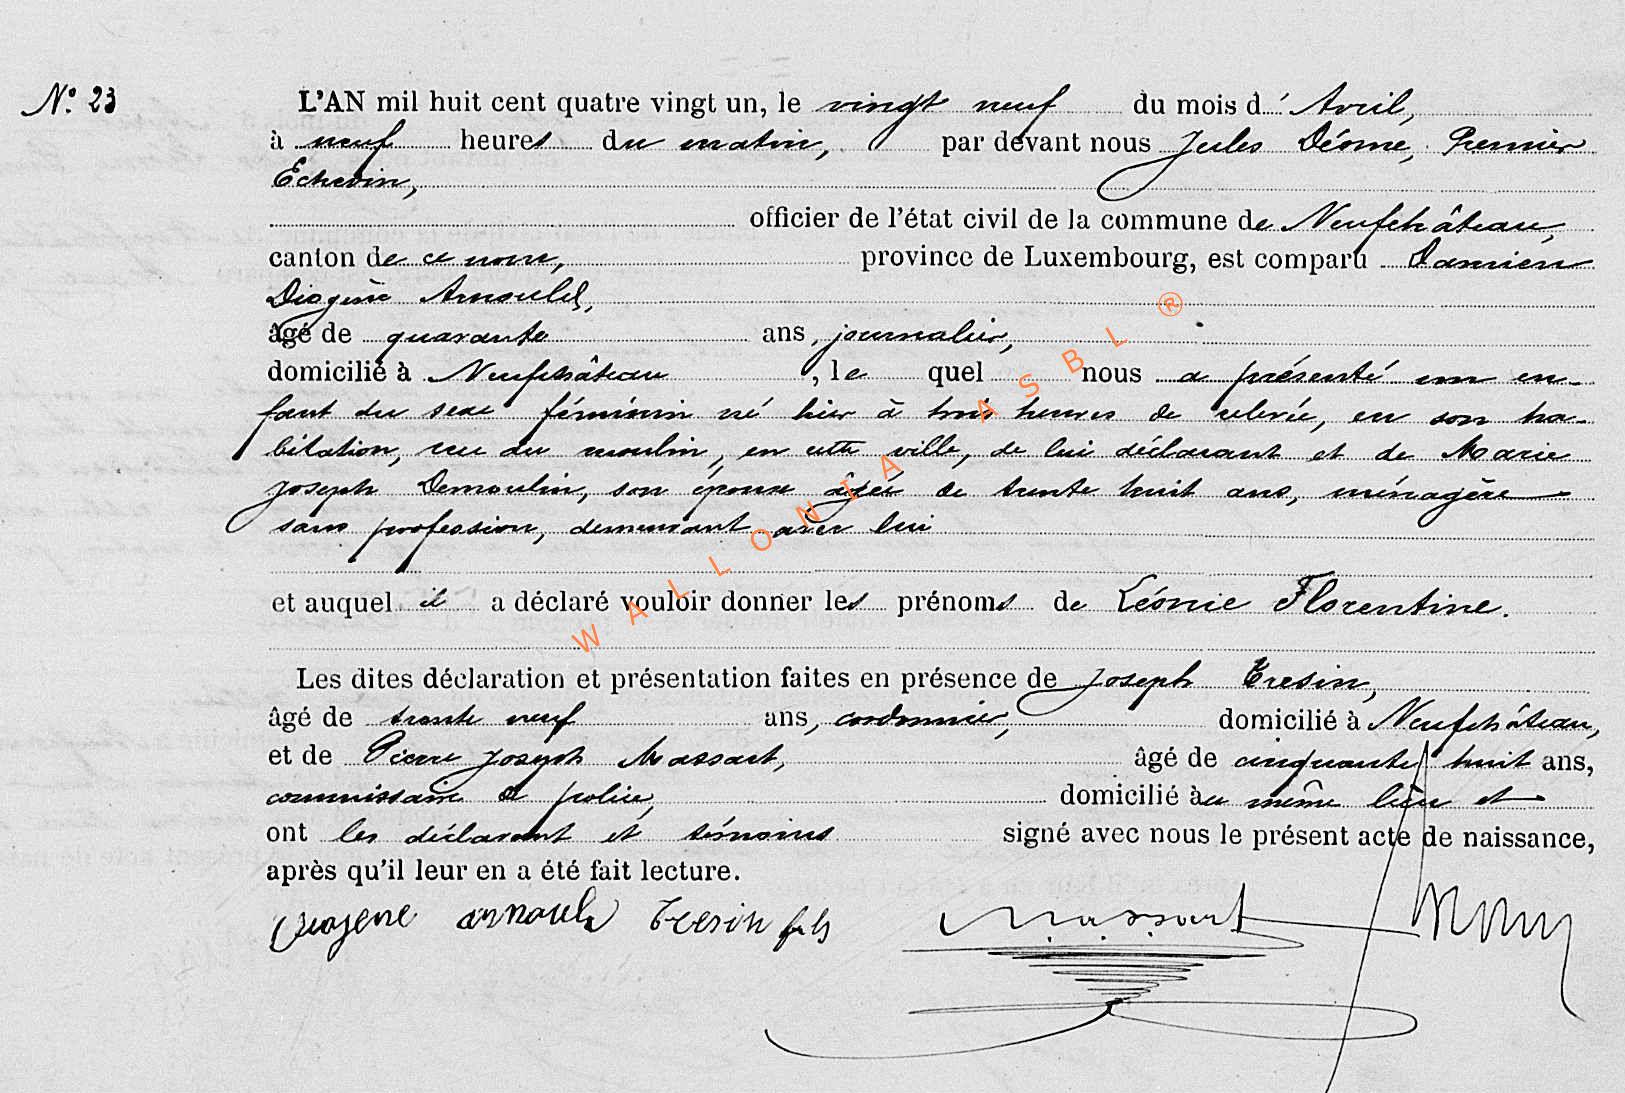 N° 23
L'AN mil huit cent quatre vingt un, le vingt neuf du mois d' Avril,
à neuf heures du matin, par devant nous Jules Déome, Premier
Echevin,
officier de l'état civil de la commune de Neufchâteau,
canton de ce nom, province de Luxembourg, est comparu Damien
Diogène Arnould,
âgé de quarante ans, journalier,
domicilié à Neufchâteau, le quel nous a présenté un en-
fant du sexe féminin né hier à trois heures de relevée, en son ha-
bitation, rue du moulin, en cette ville, de lui déclarant et de Marie
Joseph Demoulin, son épouse âgée de trente huit ans, ménagère
sans profession, demeurant avec lui
et auquel il a déclaré vouloir donner les prénoms de Léonie Florentine.
Les dites déclaration et présentation faites en présence de Joseph Tresin,
âgé de trente neuf ans, cordonnier, domicilié à Neufchâteau,
et de Pierre Joseph Massart, âgé de cinquante huit ans,
commissaire de police, domicilié au même lieu et
ont les déclarant et témoins signé avec nous le présent acte de naissance,
après qu'il leur en a été fait lecture.
Diogene arnould Tresin fils Massart
WALLONIA ASBL ®